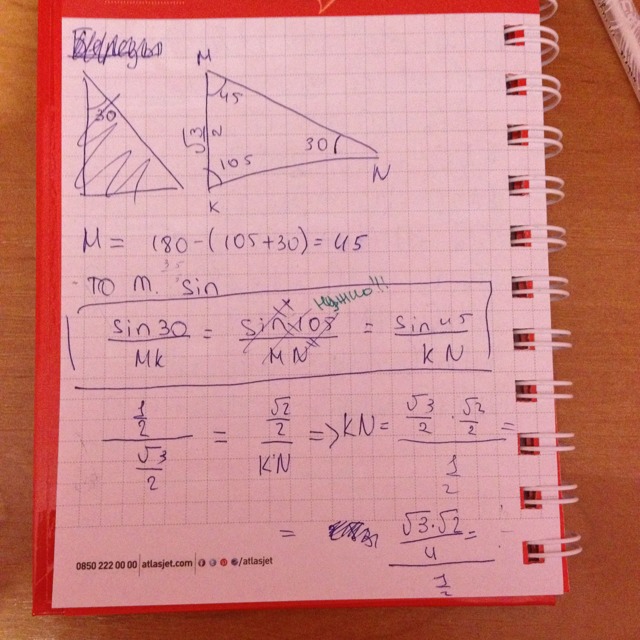 M
45
30
√3/2
30
105
N
K
M = 180 - (105 + 30) = 45
ТО Т. sin
нужно!!
sin 30 / MK = sin 105 / MN = sin 45 / KN
(1/2) / (√3/2) = (√2/2) / KN => KN = (√3/2 · √2/2) / (1/2) =
= (√3·√2 / 4) / (1/2) =
0850 222 00 00 | atlasjet.com | /atlasjet